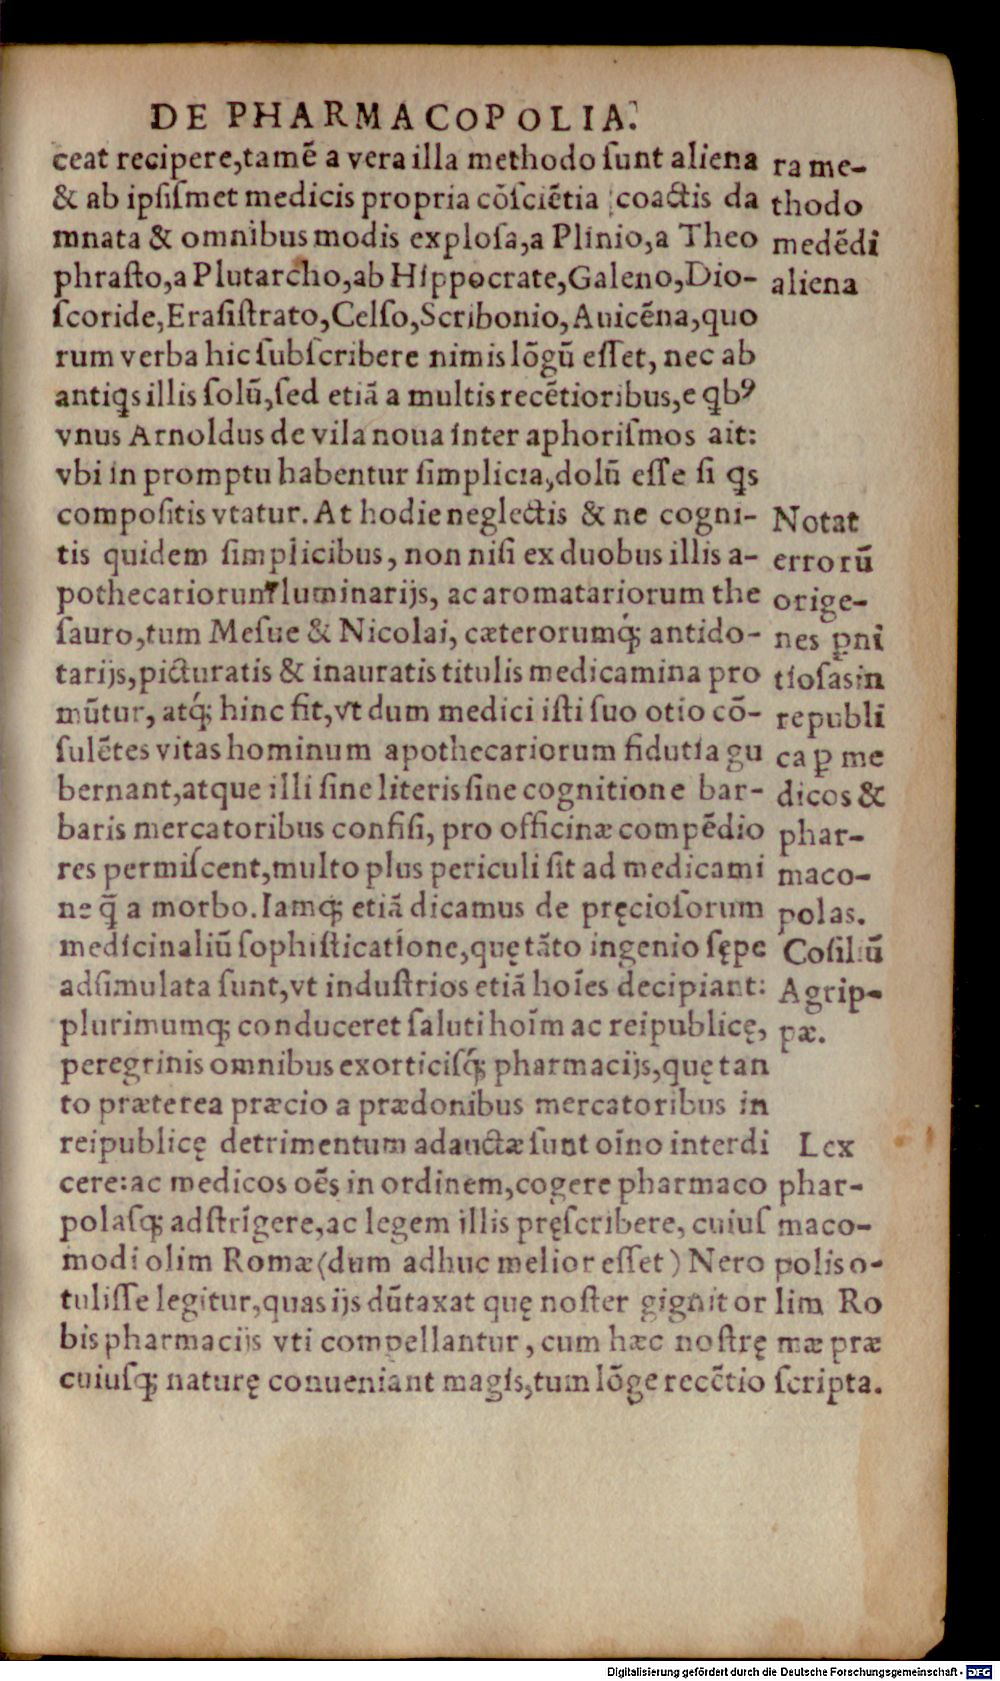 DE PHARMACOPOLIA.
ceat recipere,tamē a vera illa methodo ſunt aliena
& ab ipſiſmet medicis propria cōſciētia coactis da
mnata & omnibus modis exploſa,a Plinio,a Theo
phraſto,a Plutarcho,ab Hippocrate,Galeno,Dio-
ſcoride,Eraſiſtrato,Celſo,Scribonio,Auicēna,quo
rum verba hic ſubſcribere nimis lōgū eſſet, nec ab
antiqs illis ſolū,ſed etiā a multis recētioribus,e qbꝰ
vnus Arnoldus de vila noua inter aphoriſmos ait:
vbi in promptu habentur ſimplicia,dolū eſſe ſi qs
compoſitis vtatur. At hodie neglectis & ne cogni-
tis quidem ſimplicibus, non niſi ex duobus illis a-
pothecariorum luminarijs, ac aromatariorum the
ſauro,tum Meſue & Nicolai, cæterorumq́; antido-
tarijs,picturatis & inauratis titulis medicamina pro
mūtur, atq́; hinc fit,vt dum medici iſti ſuo otio cō-
ſulētes vitas hominum apothecariorum fidutia gu
bernant,atque illi ſine literis ſine cognitione bar-
baris mercatoribus confiſi, pro officinæ compēdio
res permiſcent,multo plus periculi ſit ad medicami
ne q̄ a morbo. Iamq; etiā dicamus de pręcioſorum
medicinaliū ſophiſticatione,quę tāto ingenio ſępe
adſimulata ſunt,vt induſtrios etiā hoīes decipiant:
plurimumq; conduceret ſaluti hoīm ac reipublicę,
peregrinis omnibus exorticiſq́; pharmacijs,quę tan
to præterea præcio a prædonibus mercatoribus in
reipublicę detrimentum adauctæ ſunt oīno interdi
cere:ac medicos oēs in ordinem,cogere pharmaco
polaſq; adſtrīgere,ac legem illis pręſcribere, cuiuſ
modi olim Romæ(dum adhuc melior eſſet) Nero
tuliſſe legitur,quas ijs dūtaxat quę noſter gignit or
bis pharmacijs vti compellantur, cum hæc noſtrę
cuiuſq; naturę conueniant magis,tum lōge recētio
ra me-
thodo
medēdi
aliena
Notat
errorū
orige-
nes ꝑni
tioſas in
republi
ca ꝑ me
dicos &
phar-
maco-
polas.
Coſiliū
Agrip-
pæ.
Lex
phar-
maco-
polis o-
lim Ro
mæ præ
ſcripta.
Digitalisierung gefördert durch die Deutsche Forschungsgemeinschaft - DFG